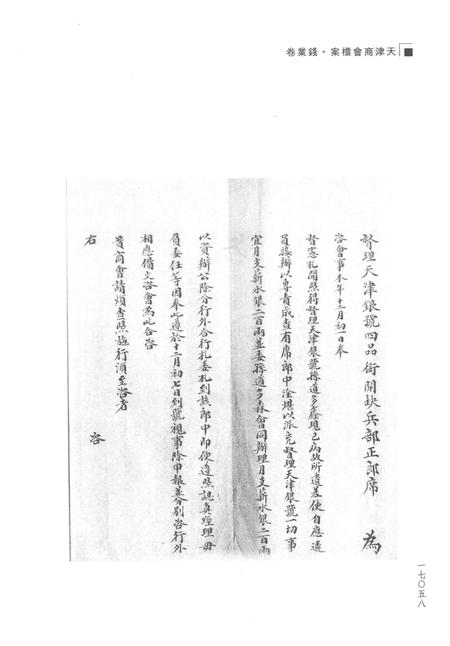 天津商會檔案·錢業卷
督理天津銀號四品銜開缺兵部正郎席　為
咨會事本年十二月初一日奉
督憲札開照得督理天津銀號孫道多鑫現已病故所遺差使自應遴
員接辦以專責成查有席郎中淦堪以派充督理天津銀號一切事
宜月支薪水銀二百兩並委孫道多森會同辦理月支薪水銀二百兩
以資辦公除分行外合行札委札到該郎中即便遵照認真經理毋
負委任等因奉此遵於十二月初七日到號視事除申報並分別咨行外
相應備文咨會為此合咨
貴商會請煩查照施行須至咨者
右　咨
一七〇五八